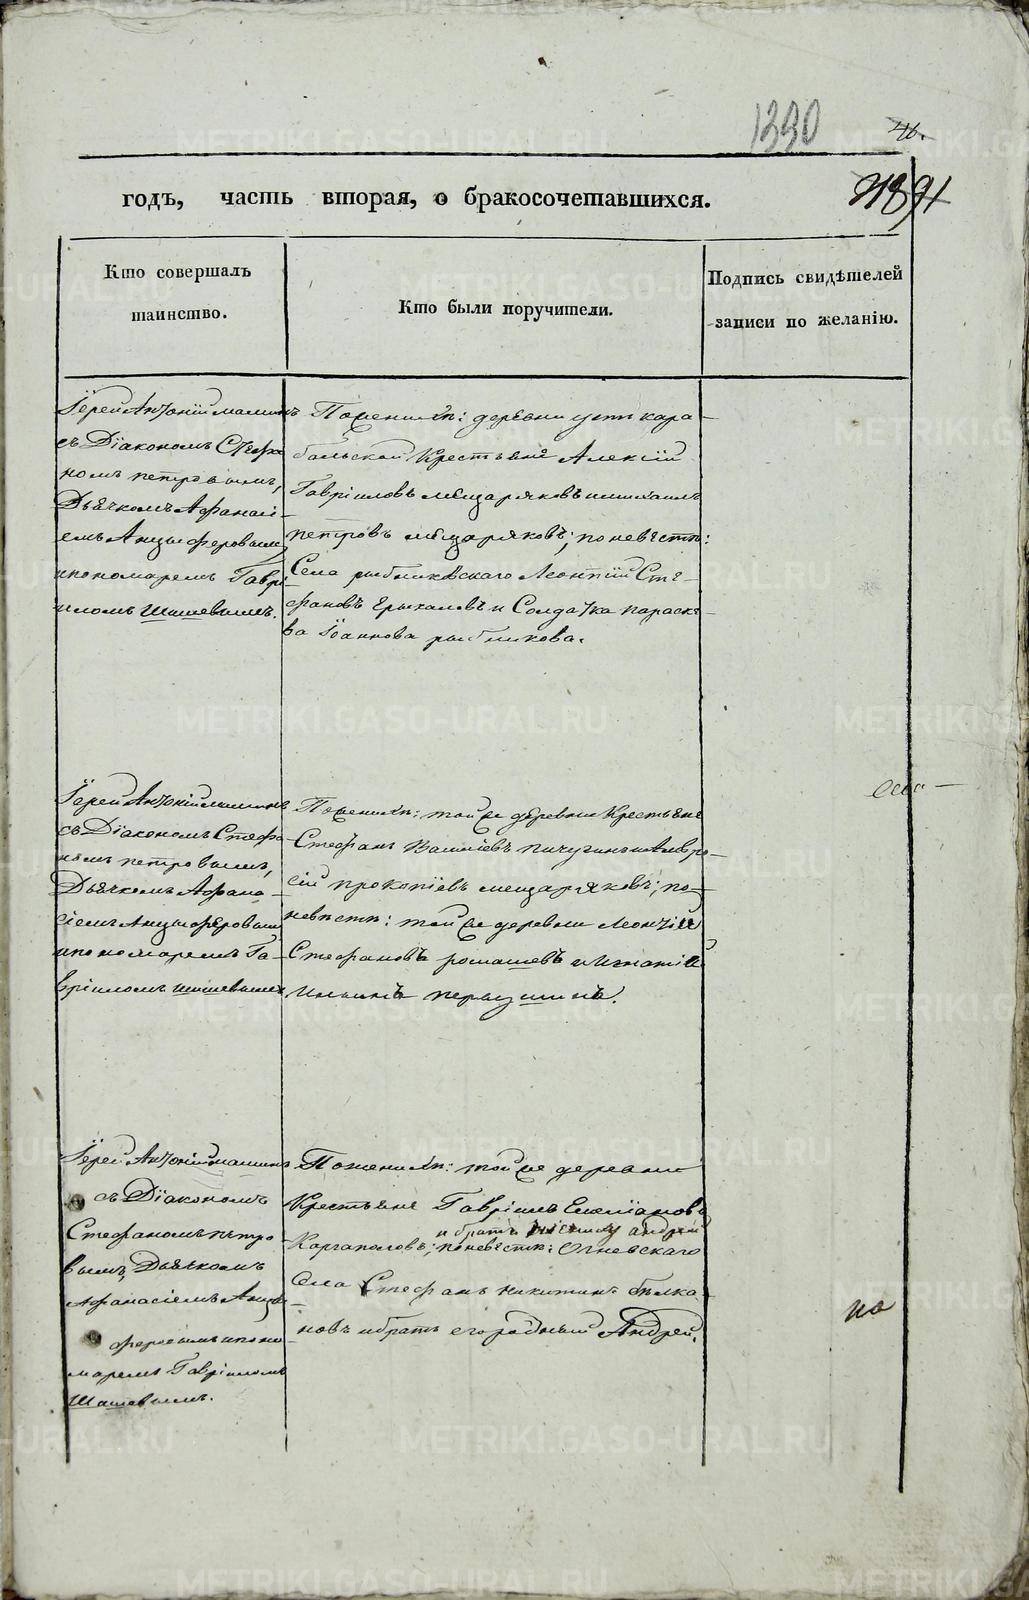 1390
46.
годъ, часть вторая, о бракосочетавшихся.
91
Кто совершалъ
таинство.
Кто были поручители.
Подпись свидѣтелей
записи по желанію.
Іерей Антоній малинъ
съ Діакономъ Стефа
номъ петровымъ,
Дьячкомъ Афанасі-
емъ Анцыферовымъ
ипономаремъ Гаврі-
иломъ Шишевымъ.
Поженихѣ: деревни усть кара-
больской Крестьяне Алексій
Гавріиловъ мещаряковъ имихаилъ
петровъ мещаряковъ; поневѣстѣ:
Села рыбниковскаго Леонтій Сте-
фановъ Ерыкаловъ и Солдатка параске-
ва Іоаннова рыбникова.
Іерей Антоній малинъ
съ Діакономъ Стефа
номъ петровымъ,
Дьячкомъ Афана-
сіемъ Анцыферовымъ
ипономаремъ Га-
вріиломъ шишевымъ
Поженихѣ: тойже деревни Крестьяне
Стефанъ Васильевъ пичугинъ иАмвро-
сій прокопіевъ мещаряковъ; по-
невѣстѣ: тойже деревни Леонтій
Стефановъ ромашевъ иИгнатій
Ильинъ первушинъ.
Іерей Антоній малинъ
съ Діакономъ
Стефаномъ петро
вымъ, Дьячкомъ
Афанасіемъ Анцы-
феровымъ ипоно
маремъ Гавріиломъ
Шишевымъ.
Поженихѣ: тойже деревни
Крестьяне Гавріилъ Емеліановъ
и братъ андрей
Каргаполовъ; поневѣстѣ: Огневскаго
села Стефанъ никитинъ бѣлка-
новъ ибратъ его родный Андрей.
по
METRIKI.GASO-URAL.RU